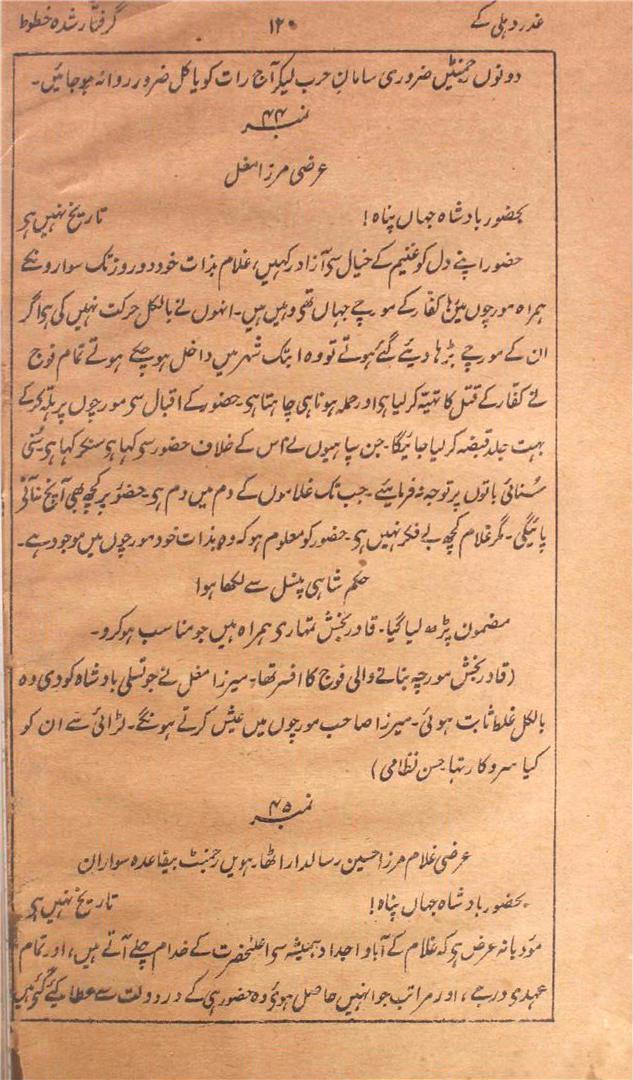 غدر دہلی کے ۱۲۰ گرفتار شدہ خطوط
دونوں رجمنٹیں ضروری سامان حرب لیکر آج رات کو یا کل ضرور روانہ ہو جائیں۔
نمبر ۴۴
عرضی مرزا مغل
بحضور بادشاہ جہاں پناہ! تاریخ نہیں ہی
حضور اپنے دل کو غنیم کے خیال سی آزاد رکہیں، غلام بذات خود دو روز تک سوارونکے
ہمراہ مورچوں میں رہا کفار کے مورچے جہاں تھی وہیں ہیں۔ انہوں نے بالکل حرکت نہیں کی ہی اگر
ان کے مورچے بڑہا دیئے گئے ہوتے تو وہ ابتک شہر میں داخل ہو چکے ہوتے تمام فوج
نے کفار کے قتل کا تہیۃ کر لیا ہی اور حملہ ہونا ہی چاہتا ہی۔ حضور کے اقبال سی مورچوں پر ہلہ کر کے
بہت جلد قبضہ کر لیا جائیگا۔ جن سپاہیوں نے اس کے خلاف حضور سی کہا ہی سنکر کہا ہی سُنی
سُنائی باتوں پر توجہ نہ فرمایئے۔ جب تک غلاموں کے دم میں دم ہی۔ حضور پر کچھ بھی آنچ نہ آنی
پائیگی۔ مگر غلام کچھ بے فکر نہیں ہی۔ حضور کو معلوم ہو کہ وہ بذات خود مورچوں میں موجود ہے۔
حکم شاہی پنسل سے لکھا ہوا
مضمون پڑھ لیا گیا۔ قادر بخش تمہاری ہمراہ ہیں جو مناسب ہو کرو۔
(قادر بخش مورچہ بنانے والی فوج کا افسر تھا۔ میرزا مغل نے جو تسلی بادشاہ کو دی وہ
بالکل غلط ثابت ہوئی۔ میرزا صاحب مورچوں میں عیش کرتے ہونگے۔ لڑائی سے ان کو
کیا سروکار تہا حسن نظامی)
نمبر ۴۵
عرضی غلام مرزا حسین رسالدار اٹھارہویں رجمنٹ بیقاعدہ سواران
بحضور بادشاہ جہاں پناہ! تاریخ نہیں ہی
مودبانہ عرض ہی کہ غلام کے آبا و اجداد ہمیشہ سی اعلیٰحضرت کے خدام چلے آتے ہیں، اور تمام
عہدی درجے، اور مراتب جو انہیں حاصل ہوئی وہ حضور ہی کے در دولت سے عطا کیئے گئی ہیں